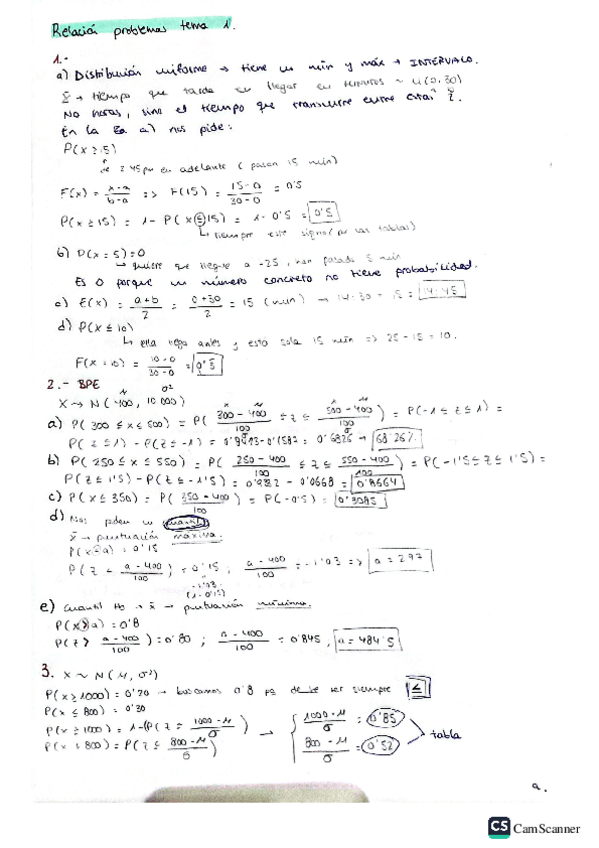 Relación problemas tema 1.
1.-
a) Distribución uniforme → tiene un mín y máx → INTERVALO.
X → tiempo que tarda en llegar en minutos ~ U(0,30)
No horas, sino el tiempo que transcurre entre
En la Ea a) nos pide:
P(X ≥ 15)
de 2'45pm en adelante (pasan 15 min)
F(x) = x-a / b-a => F(15) = 15-0 / 30-0 = 0'5
P(X ≥ 15) = 1 - P(X ≤ 15) = 1 - 0'5 = 0'5
↳ siempre este signo (por las tablas)
b) P(X = 5) = 0
↳ quiere que llegue a -25, han pasado 5 min
Es 0 porque un número concreto no tiene probabilidad.
c) E(X) = a+b / 2 = 0+30 / 2 = 15 (min) → 14:30 - 15 = 14:45
d) P(X ≤ 10)
↳ ella llega antes y esto sola 15 min => 25-15 = 10.
F(X = 10) = 10-0 / 30-0 =
2.- BPE
X → N(400, 10.000)
a) P(300 ≤ X ≤ 500) = P(300-400 / 100 ≤ Z ≤ 500-400 / 100) = P(-1 ≤ Z ≤ 1) =
P(Z ≤ 1) - P(Z ≤ -1) = 0'8413-0'1587 = 0'6826 → 68'26%
b) P(250 ≤ X ≤ 550) = P(250-400 / 100 ≤ Z ≤ 550-400 / 100) = P(-1'5 ≤ Z ≤ 1'5) =
P(Z ≤ 1'5) - P(Z ≤ -1'5) = 0'9332 - 0'0668 = 0'8664
c) P(X ≤ 350) = P(350-400 / 100) = P(-0'5) = 0'3085
d) Nos piden un cuantil
X → puntuación máxima.
P(X < a) = 0'15
P(Z < a-400 / 100) = 0'15 ; a-400 / 100 = -1'03 => a = 297
e) Cuantil X → puntuación mínima.
P(X > a) = 0'8
P(Z > a-400 / 100) = 0'80 ; a-400 / 100 = 0'845, a = 484'5
3. X ~ N(μ, σ²)
P(X ≥ 1000) = 0'20 → buscamos 0'8 pq debe ser siempre ≤
P(X ≤ 800) = 0'30
P(X ≥ 1000) = 1-(P(Z ≤ 1000-μ / σ) → 1000-μ / σ = 0'85
P(X ≤ 800) = P(Z ≤ 800-μ / σ) 800-μ / σ = 0'52 tabla
a.
CS CamScanner